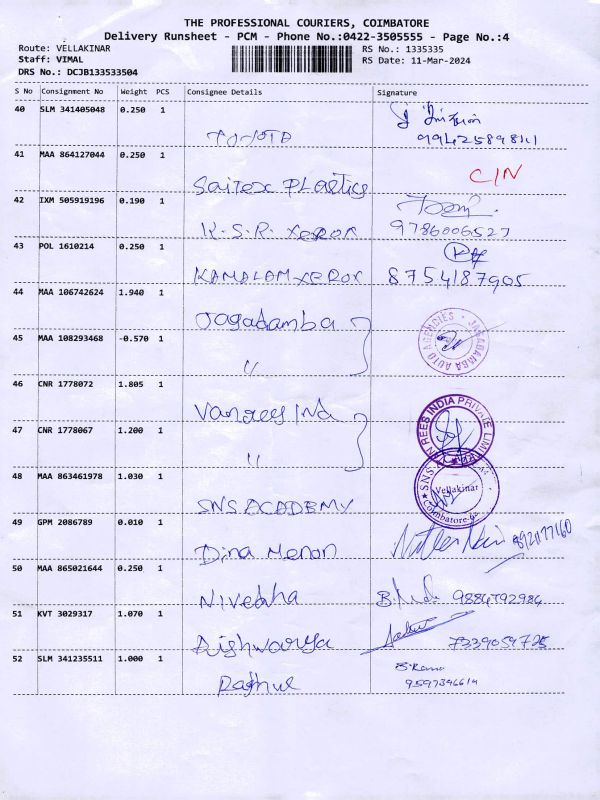 THE PROFESSIONAL COURIERS, COIMBATORE
Delivery Runsheet - PCM - Phone No.:0422-3505555 - Page No.:4
Route: VELLAKINAR
RS No.: 1335335
Staff: VIMAL
RS Date: 11-Mar-2024
DRS No.: DCJB133533504
S No Consignment No Weight PCS Consignee Details Signature
40 SLM 341405048 0.250 1
TOYOTA
41 MAA 864127044 0.250 1
Saitex PLastics CIN
42 IXM 505919196 0.190 1
K.S.R. xerox 9786006527
43 POL 1610214 0.250 1
KAMALAM XEROX 8754187905
44 MAA 106742624 1.940 1
Jagadamba
JAGADAMBA AUTO AGENCIES
45 MAA 108293468 -0.570 1
"
46 CNR 1778072 1.805 1
Vanrees Ind
REES INDIA PRIVATE LIMI
47 CNR 1778067 1.200 1
"
48 MAA 863461978 1.030 1
SNS ACADEMY
SNS
Vellakinar
Coimbatore
49 GPM 2086789 0.010 1
Dina Menon
50 MAA 865021644 0.250 1
Nivedha 9884792984
51 KVT 3029317 1.070 1
Aishwarya 7339059725
52 SLM 341235511 1.000 1
Raghul